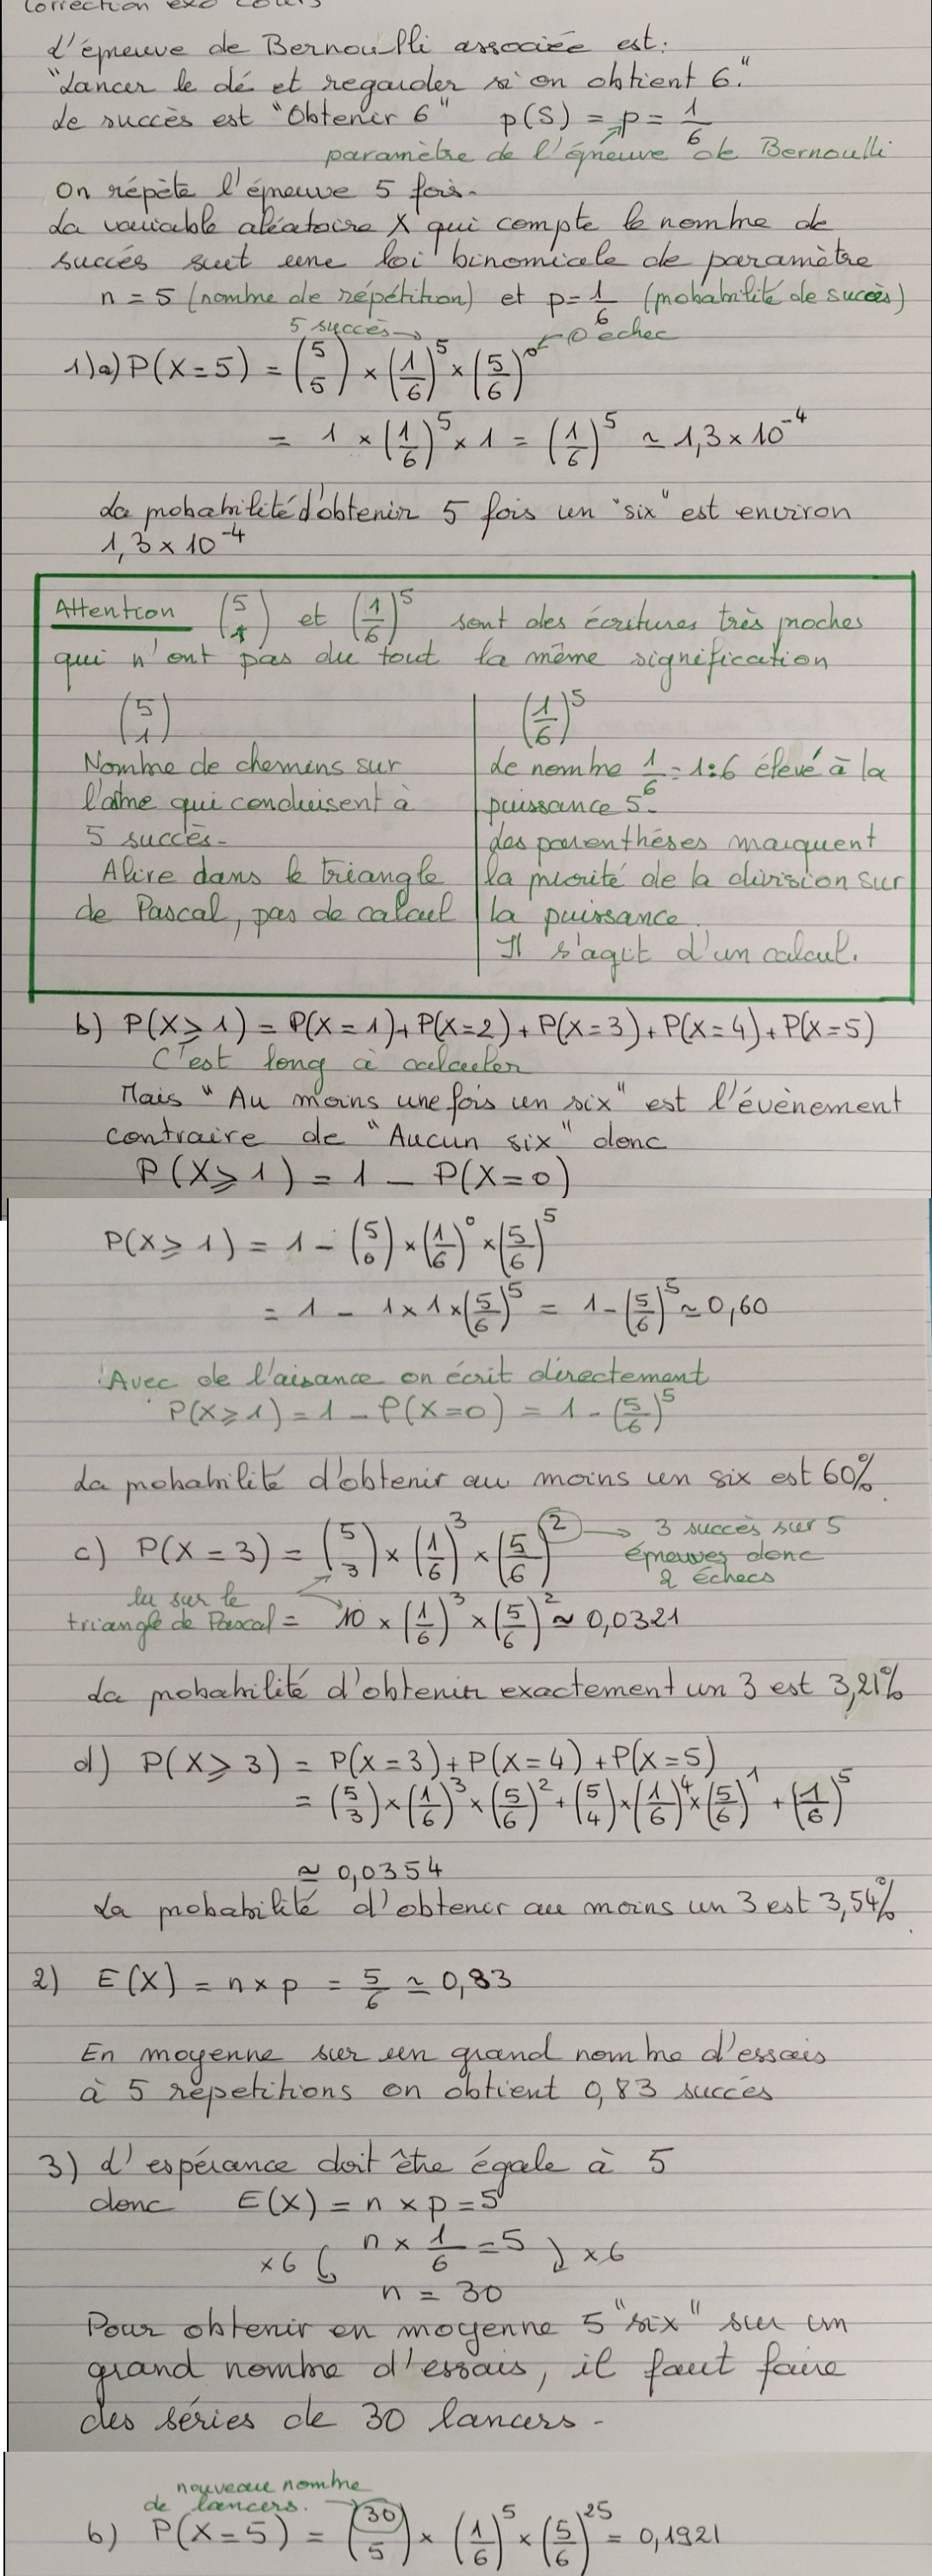 Correction exo cours
L'épreuve de Bernoulli associée est:
"Lancer le dé et regarder si on obtient 6."
Le succès est "Obtenir 6" p(S) = p = 1/6
paramètre de l'épreuve de Bernoulli
On répète l'épreuve 5 fois.
La variable aléatoire X qui compte le nombre de
succès suit une loi binomiale de paramètre
n = 5 (nombre de répétition) et p = 1/6 (probabilité de succès)
5 succès → ← 0 échec
1) a) P(X=5) = (5 5) × (1/6)^5 × (5/6)^0
= 1 × (1/6)^5 × 1 = (1/6)^5 ≃ 1,3 × 10^-4
La probabilité d'obtenir 5 fois un "six" est environ
1,3 × 10^-4
Attention (5 1) et (1/6)^5 sont des écritures très proches
qui n'ont pas du tout la même signification
(5 1) (1/6)^5
Nombre de chemins sur
l'arbre qui conduisent à
5 succès.
A lire dans le triangle
de Pascal, pas de calcul
Le nombre 1/6 = 1:6 élevé à la
puissance 5.
Les parenthèses marquent
la priorité de la division sur
la puissance.
Il s'agit d'un calcul.
b) P(X ⩾ 1) = P(X=1) + P(X=2) + P(X=3) + P(X=4) + P(X=5)
C'est long à calculer
Mais "Au moins une fois un six" est l'évènement
contraire de "Aucun six" donc
P(X ⩾ 1) = 1 - P(X=0)
P(X ⩾ 1) = 1 - (5 0) × (1/6)^0 × (5/6)^5
= 1 - 1 × 1 × (5/6)^5 = 1 - (5/6)^5 ≃ 0,60
Avec de l'aisance on écrit directement
P(X ⩾ 1) = 1 - P(X=0) = 1 - (5/6)^5
La probabilité d'obtenir au moins un six est 60%.
c) P(X=3) = (5 3) × (1/6)^3 × (5/6)^2 → 3 succès sur 5
épreuves donc
2 échecs
lu sur le
triangle de Pascal = 10 × (1/6)^3 × (5/6)^2 ≃ 0,0321
La probabilité d'obtenir exactement un 3 est 3,21%
d) P(X ⩾ 3) = P(X=3) + P(X=4) + P(X=5)
= (5 3) × (1/6)^3 × (5/6)^2 + (5 4) × (1/6)^4 × (5/6)^1 + (1/6)^5
≃ 0,0354
La probabilité d'obtenir au moins un 3 est 3,54%.
2) E(X) = n × p = 5/6 ≃ 0,83
En moyenne sur un grand nombre d'essais
à 5 répetitions on obtient 0,83 succès
3) L'espérance doit être égale à 5
donc E(X) = n × p = 5
×6 n × 1/6 = 5 ×6
n = 30
Pour obtenir en moyenne 5 "six" sur un
grand nombre d'essais, il faut faire
des séries de 30 lancers.
nouveau nombre
de lancers.
b) P(X=5) = (30 5) × (1/6)^5 × (5/6)^25 = 0,1921